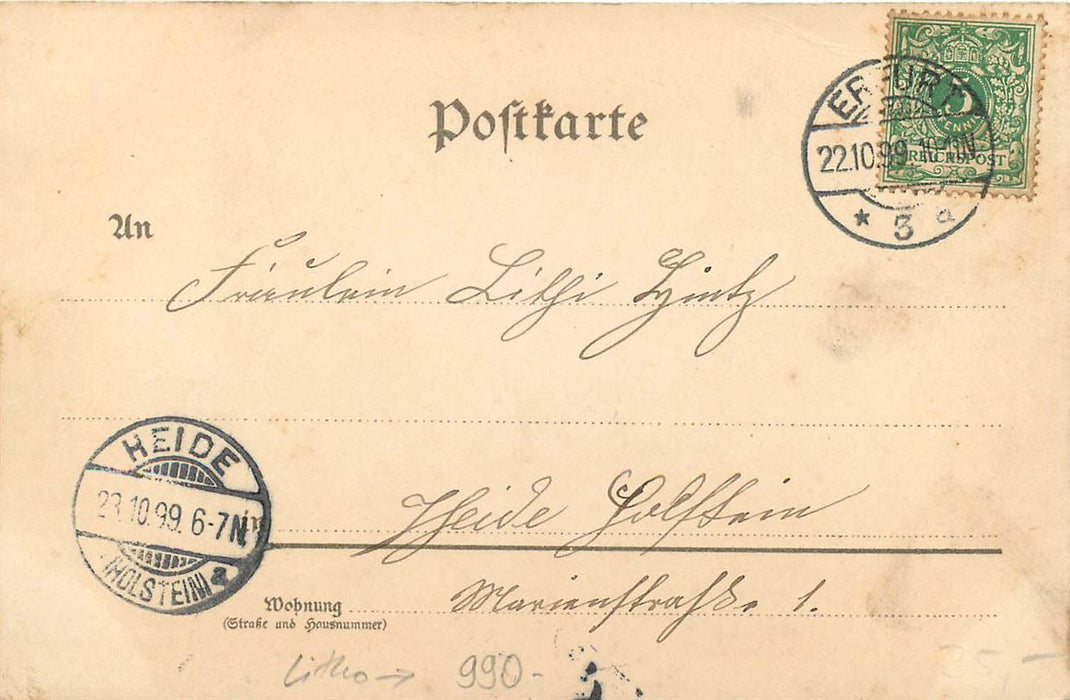 Postkarte
ERFURT
22.10.99. 10-11N
* 3
5
PFENNIG
REICHSPOST
An
Fräulein Lithi Hintz
HEIDE
23.10.99. 6-7N
(HOLSTEIN)
Heide Holstein
Wohnung Marienstraße 1.
(Straße und Hausnummer)
Litho → 990-
25,-